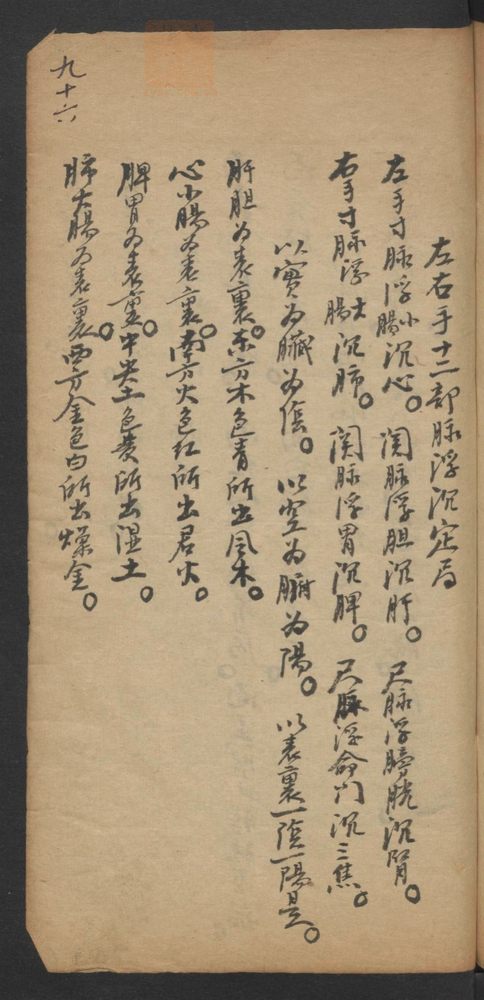 左右手十二部脉浮沉定局
左手寸脉浮小腸沉心。関脉浮胆沉肝。尺脉浮膀胱沉腎。
右手寸脉浮大腸沉肺。関脉浮胃沉脾。尺脉浮命门沉三焦。
以實为臓为陰。以空为腑为陽。以表裏一陰一陽是。
肝胆为表裏。东方木色青所出風木。
心小腸为表裏。南方火色红所出君火。
脾胃为表裏。中央土色黄所出湿土。
肺大腸为表裏。西方金色白所出燥金。
九十六